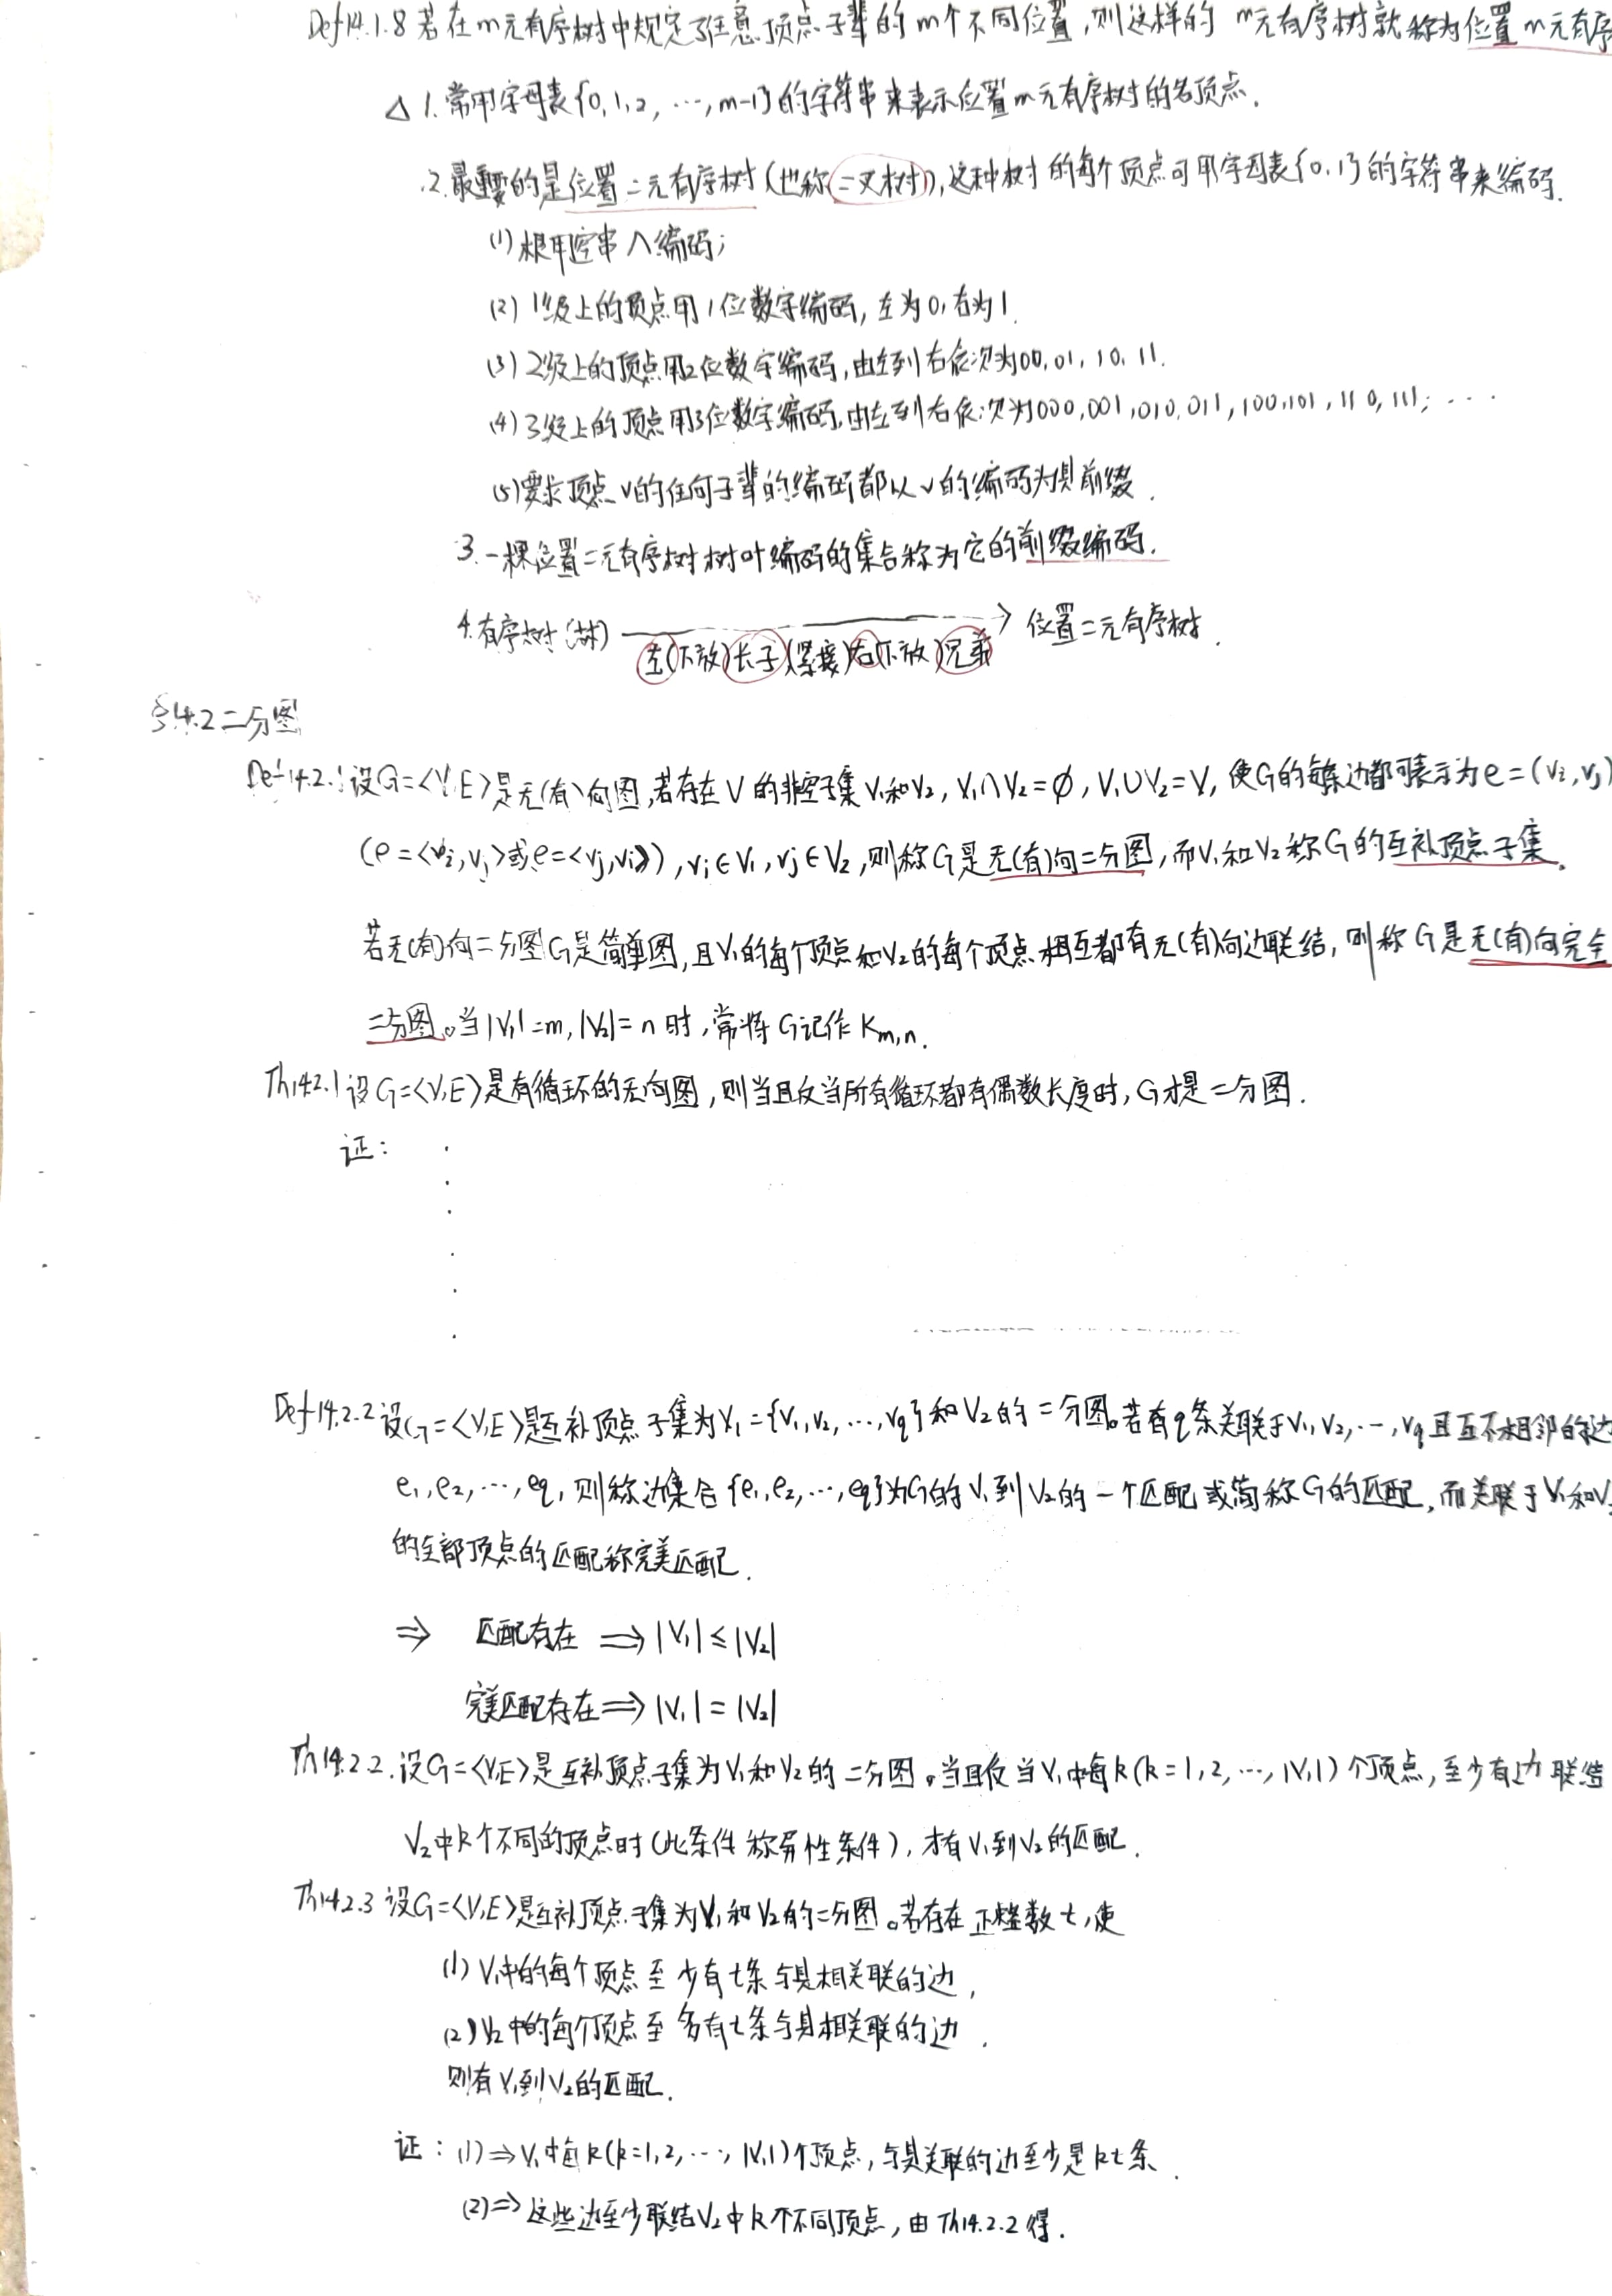 Def14.1.8 若在m元有序树中规定了任意顶点子辈的m个不同位置,则这样的 m元有序树就称为位置m元有序
△ 1.常用字母表{0,1,2,…,m-1}的字符串来表示位置m元有序树的各顶点.
2.最重要的是位置二元有序树(也称二叉树),这种树的每个顶点可用字母表{0,1}的字符串来编码.
(1)根用空串∧编码;
(2) 1级上的顶点用1位数字编码,左为0,右为1.
(3) 2级上的顶点用2位数字编码,由左到右依次为00,01,10,11.
(4) 3级上的顶点用3位数字编码,由左到右依次为000,001,010,011,100,101,110,111;…
(5)要求顶点v的任何子辈的编码都以v的编码为其前缀.
3.一棵位置二元有序树树叶编码的集合称为它的前缀编码.
4.有序树(林) ——→ 位置二元有序树.
左(下放)长子(紧接)右(下放)兄弟
§14.2 二分图
Def14.2.1设G=<V,E>是无(有)向图,若存在V的非空子集V₁和V₂, V₁∩V₂=∅, V₁∪V₂=V, 使G的每条边都可表示为e=(vi,vj)
(e=<vi,vj>或e=<vj,vi>), vi∈V₁, vj∈V₂,则称G是无(有)向二分图,而V₁和V₂称G的互补顶点子集.
若无(有)向二分图G是简单图,且V₁的每个顶点和V₂的每个顶点相互都有无(有)向边联结,则称G是无(有)向完全
二分图。当|V₁|=m,|V₂|=n时,常将G记作Km,n.
Th14.2.1设G=<V,E>是有循环的无向图,则当且仅当所有循环都有偶数长度时,G才是二分图.
证:
Def14.2.2设G=<V,E>是互补顶点子集为V₁={v₁,v₂,…,vq}和V₂的二分图。若有q条关联于v₁,v₂,…,vq且互不相邻的边
e₁,e₂,…,eq,则称边集合{e₁,e₂,…,eq}为G的V₁到V₂的一个匹配或简称G的匹配,而关联于V₁和V₂
的全部顶点的匹配称完美匹配.
⇒ 匹配存在 ⇒ |V₁|≤|V₂|
完美匹配存在⇒ |V₁|=|V₂|
Th14.2.2.设G=<V,E>是互补顶点子集为V₁和V₂的二分图。当且仅当V₁中每k(k=1,2,…,|V₁|)个顶点,至少有边联结
V₂中k个不同的顶点时(此条件称异性条件),才有V₁到V₂的匹配.
Th14.2.3 设G=<V,E>是互补顶点子集为V₁和V₂的二分图。若存在正整数t,使
(1) V₁中的每个顶点至少有t条与其相关联的边,
(2) V₂中的每个顶点至多有t条与其相关联的边.
则有V₁到V₂的匹配.
证: (1)⇒V₁中每k(k=1,2,…,|V₁|)个顶点,与其关联的边至少是kt条.
(2)⇒这些边至少联结V₂中k个不同顶点,由Th14.2.2得.